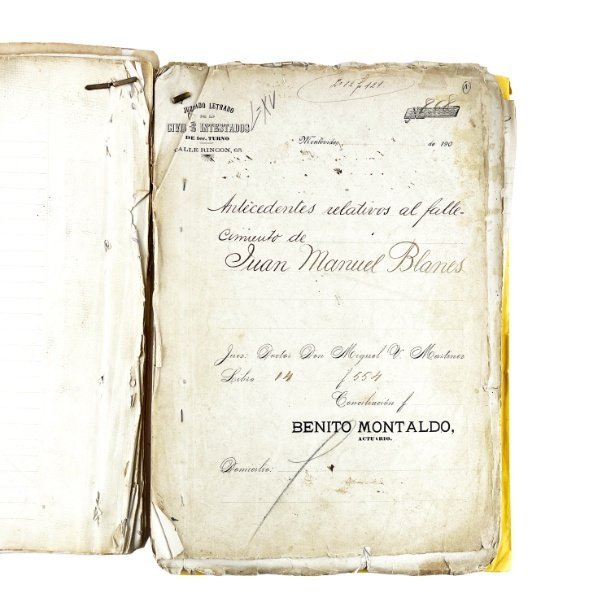 JUZGADO LETRADO
DE LO
CIVIL É INTESTADOS
DE 1er. TURNO
CALLE RINCON, 65
LXV
Montevideo, de 190
Antecedentes relativos al falle-
cimiento de
Juan Manuel Blanes
Juez: Doctor Don Miguel V. Martinez
Libro 14 f 554
Conciliación f
BENITO MONTALDO,
ACTUARIO.
Domicilio: